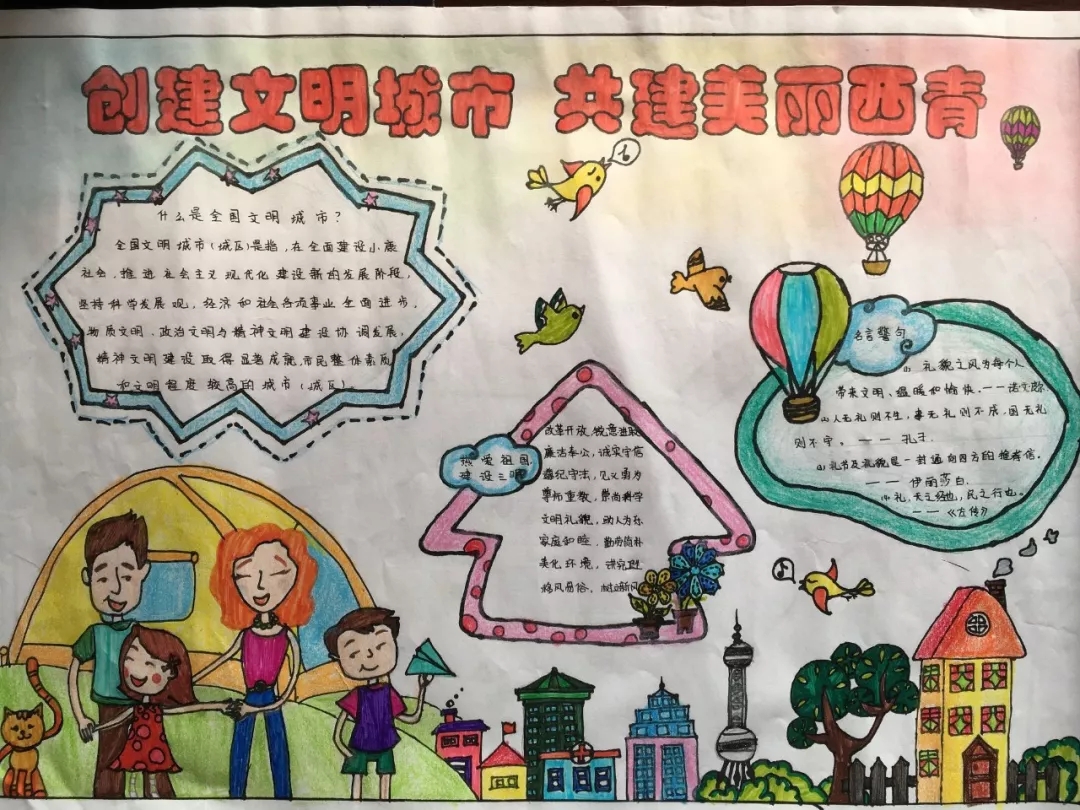 创建文明城市 共建美丽西青
什么是全国文明城市？
全国文明城市（城区）是指，在全面建设小康
社会，推进社会主义现代化建设新的发展阶段，
坚持科学发展观，经济和社会各项事业全面进步，
物质文明、政治文明与精神文明建设协调发展，
精神文明建设取得显著成就，市民整体素质
和文明程度较高的城市（城区）。
热爱祖国
建设
改革开放，锐意进取
廉洁奉公，诚实守信
遵纪守法，见义勇为
尊师重教，崇尚科学
文明礼貌，助人为乐
家庭和睦，勤劳简朴
美化环境，讲究卫生
移风易俗，树立新风
名言警句
礼貌之风为每个人
带来文明、温暖和愉快。——诺文郡
人无礼则不生，事无礼则不成，国无礼
则不宁。——孔子
礼节及礼貌是一封通向四方的推荐信。
——伊丽莎白
礼，天之经也，民之行也。
——《左传》